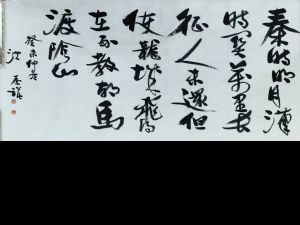 秦時明月漢
時關萬里長
征人未還但
使龍城飛將
在不教胡馬
渡陰山
癸未仲春
洪丕謨